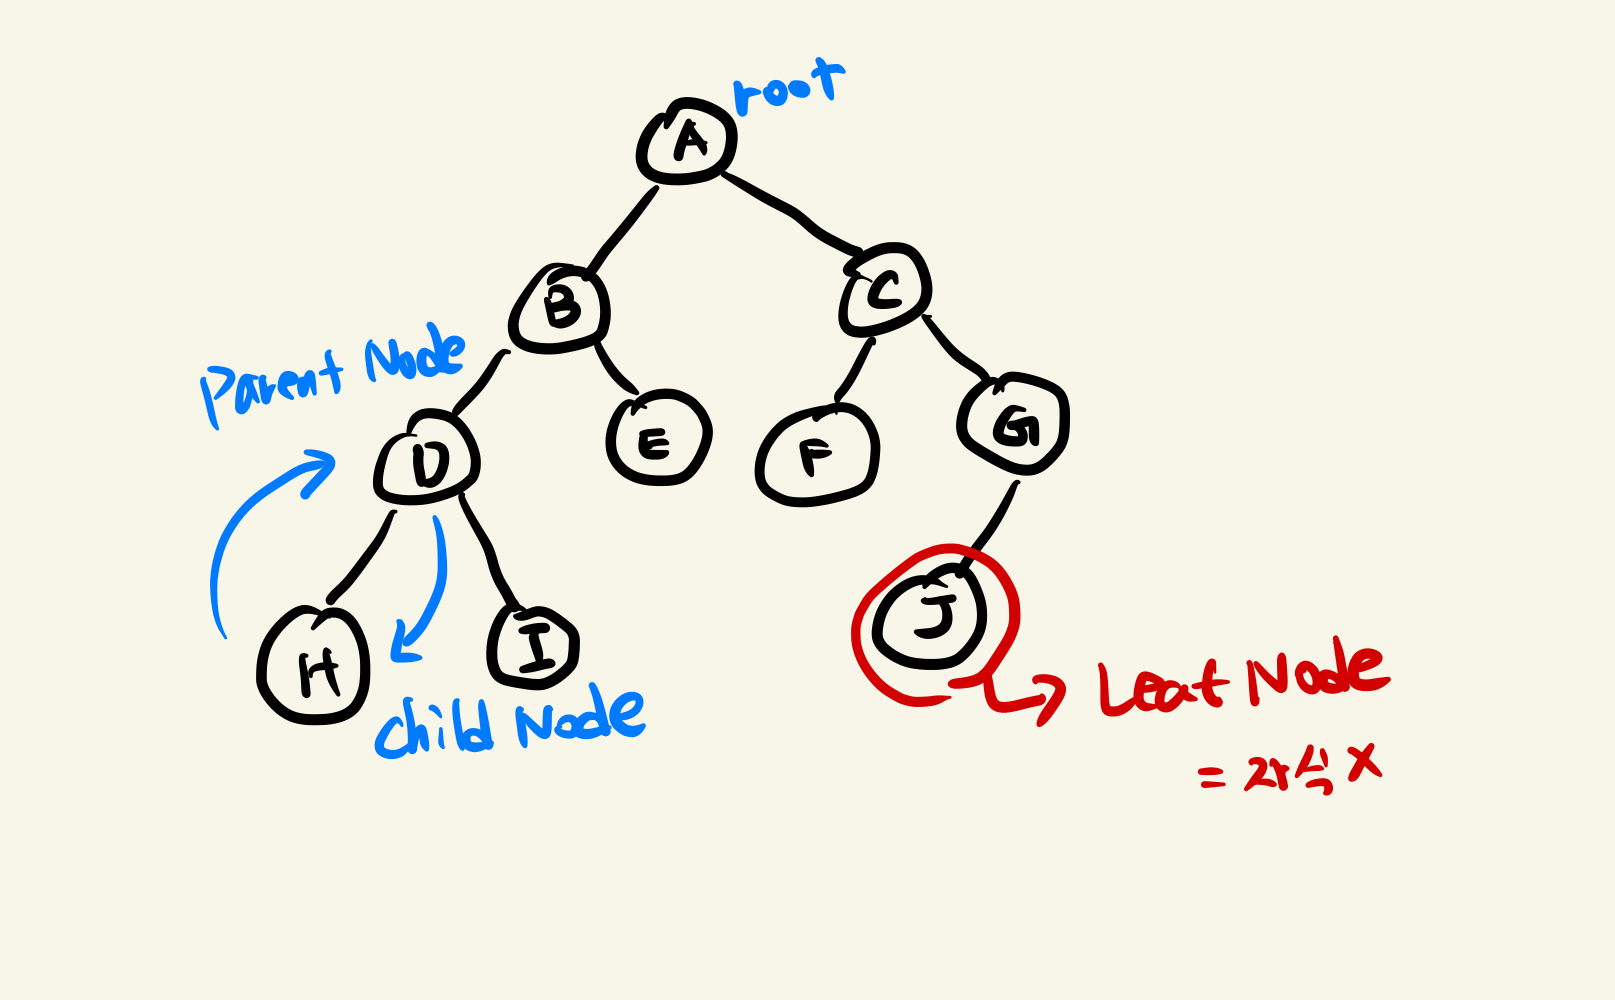 root
A
B
C
Parent Node
D
E
F
G
H
I
J
child Node
Leaf Node
= 자식 X